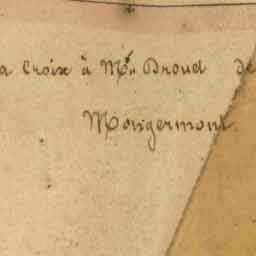 a Croix à Mr. Droud de
Mongermont.